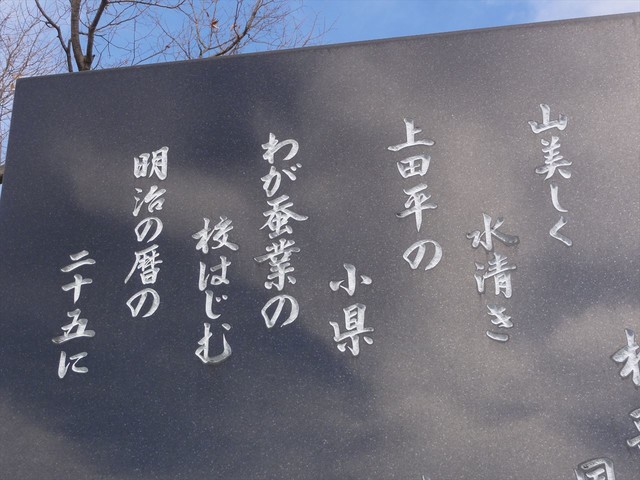 山美しく
水清き
上田平の
小県
わが蚕業の
校はじむ
明治の暦の
二十五に